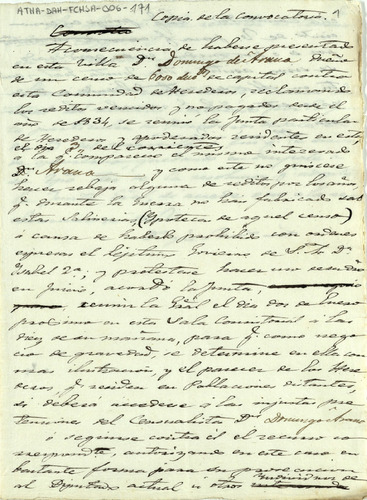 ATHA-DAH-FCHSA-006-171
Copia de la convocatoria. 1
A consecuencia de haberse presentado
en esta villa Dn. Domingo de Arana dueño
de un censo de de capital contra
esta Comunidad de Herederos, reclamando
los reditos vencidos y no pagados desde el
año de 1834, se reunió la Junta particular
de Herederos y apoderados residentes en esta,
el dia del corriente,
a la q. compareció el mismo interesado
Dn. Arana y como este no quisiese
hacer rebaja alguna de reditos por los años
q. durante la Guerra no han fabricado sal
estas Salineras, (Hipoteca de aquel censo)
á causa de haberlo prohibido con ordenes
expresas el Lejitimo Gobierno de S. M. Dª
Ysabel 2ª; y protestase hacer uso de su dro
en Juicio, acordó la Junta,
reunir la Gral el dia dos de Enero
proximo en esta Sala Consistorial á las
diez de su mañana, para q. como nego
cio de gravedad, se determine en ella con
mas ilustracion, y el parecer de los Here
deros q. residen en Poblaciones distantes,
si deberá accederse á las injustas pre
tensiones del Censualista Dn. Domingo Arana
ó seguirse contra él el recurso co
rrespondte, autorizando en este caso, en
bastante forma para su prosecucion
al Diputado actual u otros